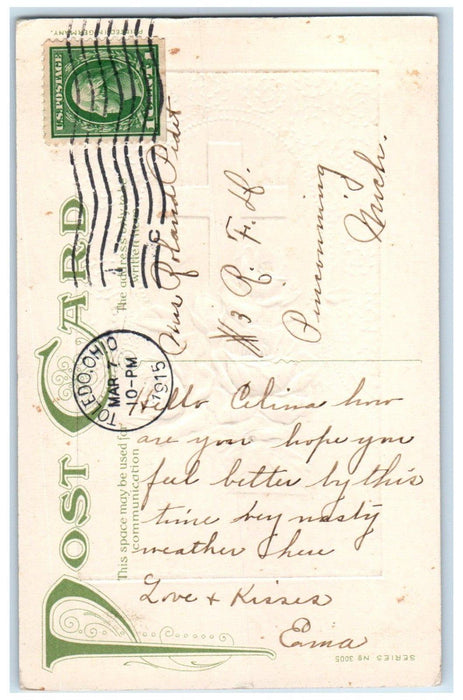 PRINTED IN GERMANY
U.S. POSTAGE
1 CENT 1
TOLEDO, OHIO
MAR 7
10-PM
1915
C
POST CARD
The address
This space may be used for
communication
Mrs Roland Petit
#3 R. F. D.
Pinconning
Mich.
Hello Celina how
are you hope you
feel better by this
time vey nasty
weather here
Love + Kisses
Ema
SERIES No 3005